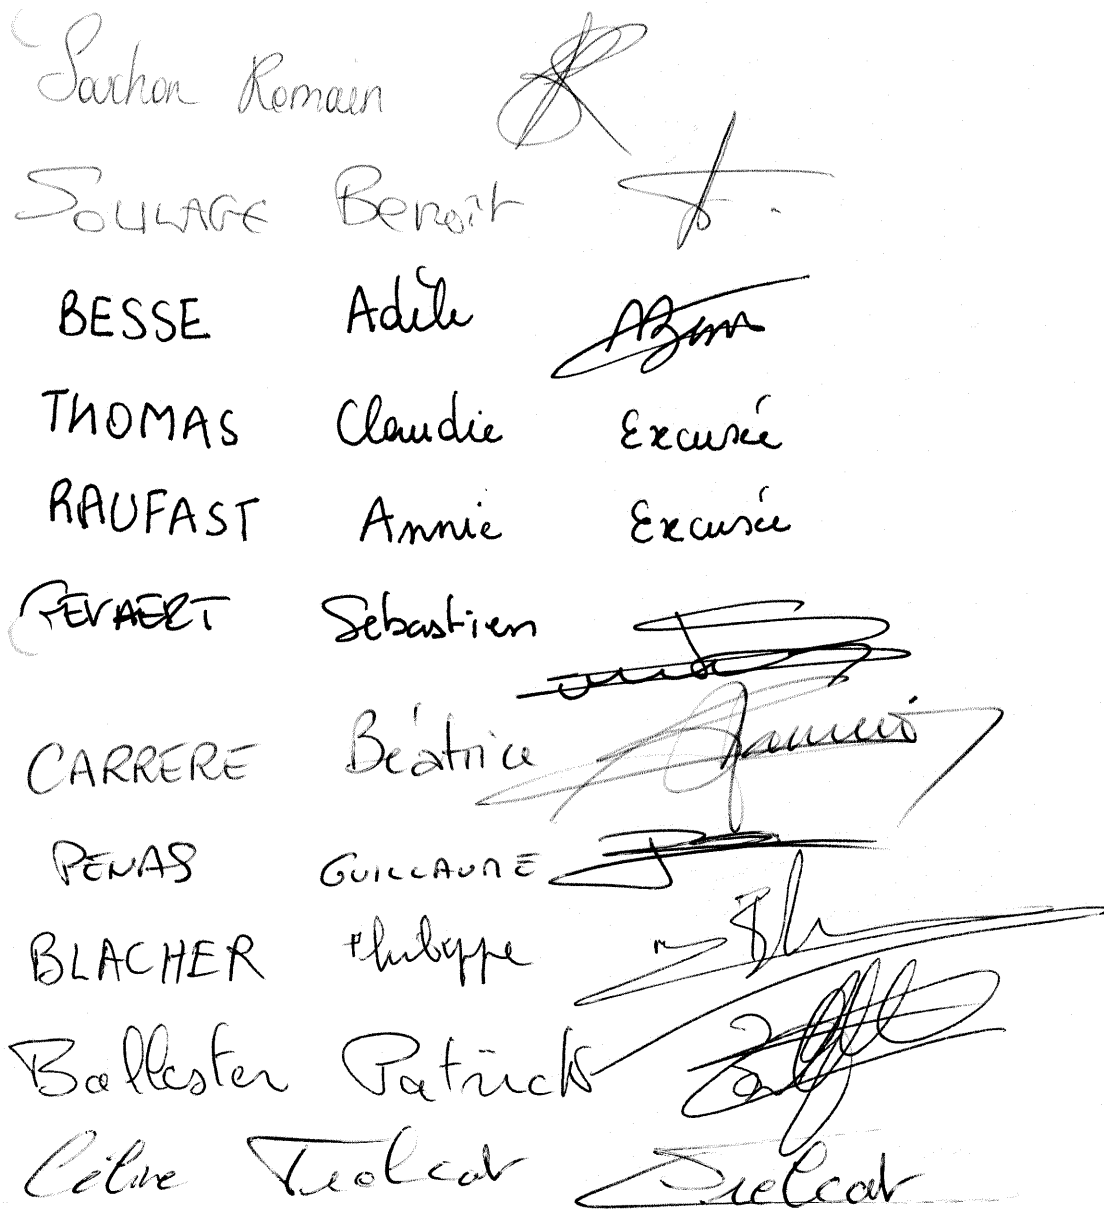 Souchon Romain
SOULAGE Benoît
BESSE Adèle
THOMAS Claudie Excusée
RAUFAST Annie Excusée
GEVAERT Sébastien
CARRERE Béatrice
PENAS GUILLAUME
BLACHER Philippe
Ballester Patrick
Céline